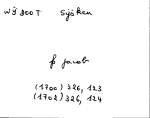 WJ 200T Syöken
p jacob
(1700) 326, 123
(1702) 326, 124